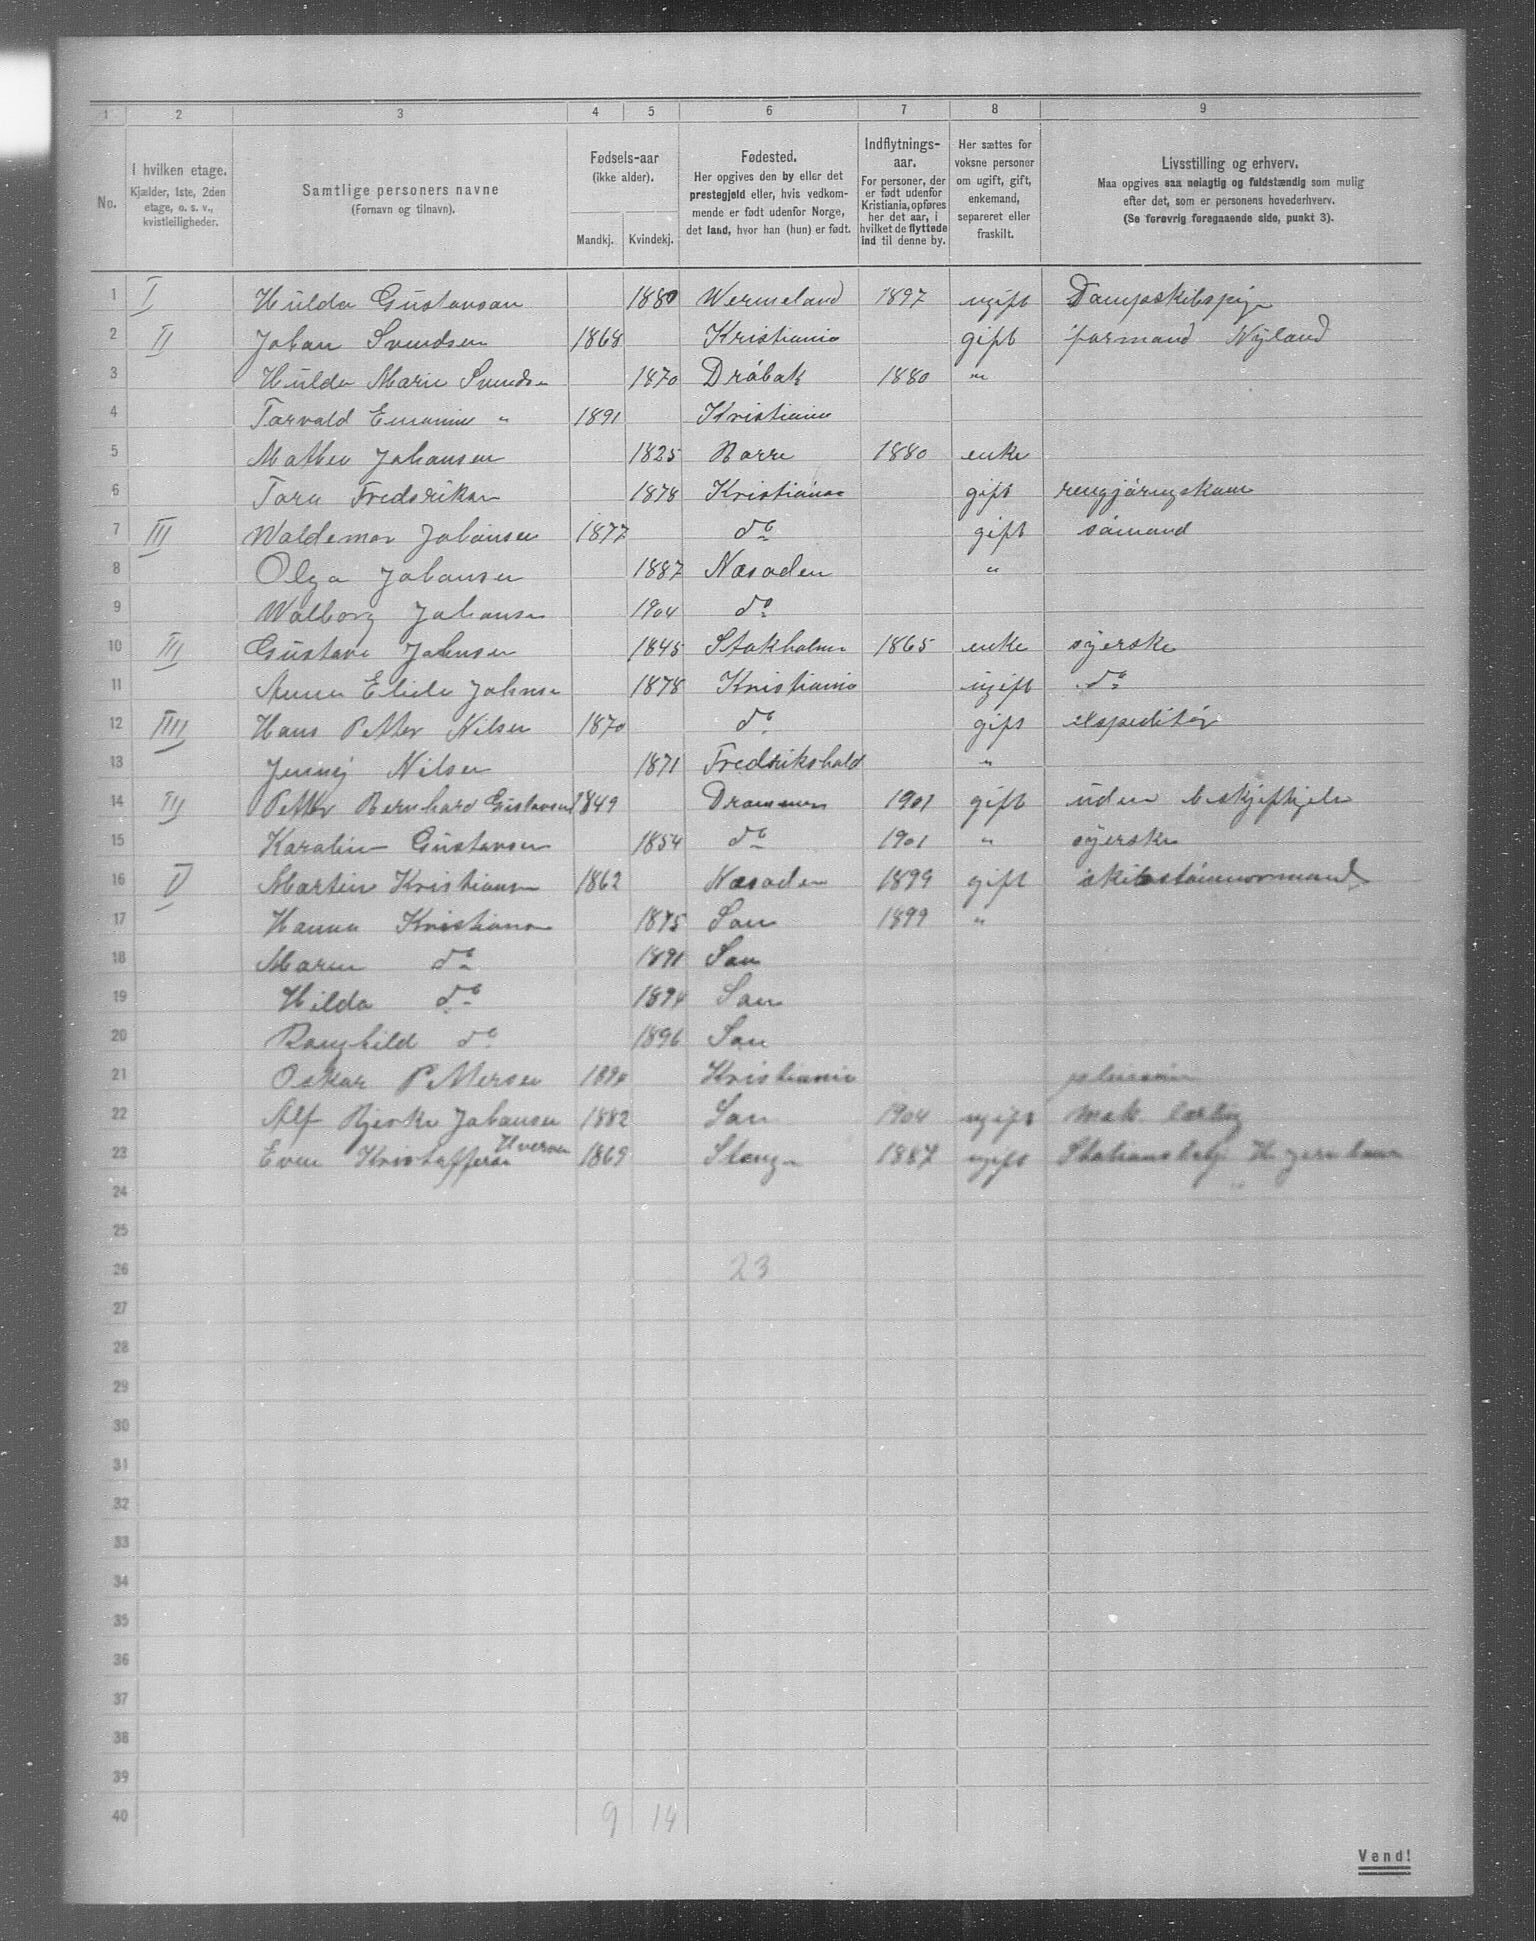 1 2 3 4 5 6 7 8 9
No.
I hvilken etage.
Kjælder, 1ste, 2den
etage, o. s. v.,
kvistleiligheder.
Samtlige personers navne
(Fornavn og tilnavn).
Fødsels-aar
(ikke alder).
Mandkj. Kvindekj.
Fødested.
Her opgives den by eller det
præstegjeld eller, hvis vedkom-
mende er født udenfor Norge,
det land, hvor han (hun) er født.
Indflytnings-
aar.
For personer, der
er født udenfor
Kristiania, opføres
her det aar, i
hvilket de flyttede
ind til denne by.
Her sættes for
voksne personer
om ugift, gift,
enkemand,
separeret eller
fraskilt.
Livsstilling og erhverv.
Maa opgives saa nøiagtig og fuldstændig som mulig
efter det, som er personens hovederhverv.
(Se forøvrig foregaaende side, punkt 3).
1 I Hulda Gustavsan 1880 Wermeland 1897 ugift Dampskibspige
2 II Johan Svendsen 1868 Kristiania gift formand Nyland
3 Hulda Marie Svends 1870 Drøbak 1880 "
4 Torvald " 1891 Kristiania
5 Mathea Johansen 1825 Borre 1880 enke
6 Tora Fredriksen 1878 Kristiania gift rengjøringskone
7 III Waldemar Johansen 1877 do gift sømand
8 Olga Johansen 1887 Næsoden "
9 Walborg Johansen 1904 do
10 III Gustava Johnsen 1845 Stokholm 1865 enke syerske
11 Anna Johnsen 1878 Kristiania ugift do
12 IIII Hans Petter Nilsen 1870 do gift ekspeditør
13 Jenny Nilsen 1871 Fredrikshald "
14 III Petter Bernhard Gustavsen 1849 Drammen 1901 gift uden beskjeftigelse
15 Karolin Gustavsen 1854 do 1901 " syerske
16 V Martin Kristiansen 1862 Næsoden 1899 gift skibstømmermand
17 Hanna Kristiansen 1875 Son 1899 "
18 Maren do 1891 Son
19 Hilda do 1894 Son
20 Ranghild do 1896 Son
21 Oskar Pettersen 1890 Kristiania
22 Alf Bjerke Johansen 1882 Son 1904 ugift mek. lærling
23 Even Kristoffersen Hverven 1869 Stange 1887 ugift
24
25
26 23
27
28
29
30
31
32
33
34
35
36
37
38
39
40 9 14
Vend!